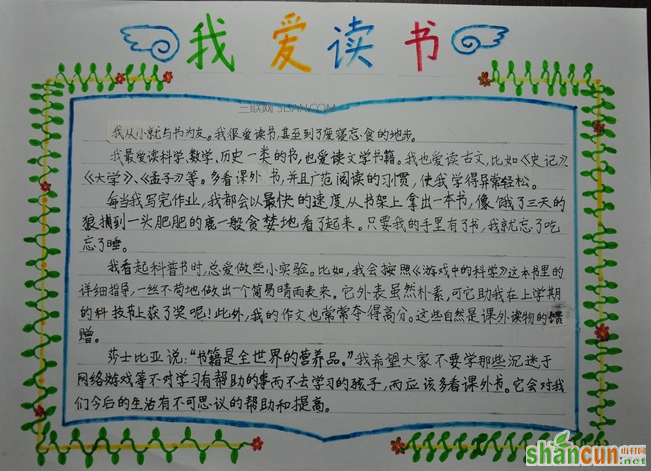 我爱读书
三联网 3LIAN.COM
我从小就与书为友。我很爱读书,甚至到了废寝忘食的地步。
我最爱读科学、数学、历史一类的书,也爱读文学书籍。我也爱读古文,比如《史记》、
《大学》、《孟子》等。多看课外书,并且广范阅读的习惯,使我学得异常轻松。
每当我写完作业,我都会以最快的速度从书架上拿出一本书,像饿了三天的
狼捕到一头肥肥的鹿一般贪婪地看了起来。只要我的手里有了书,我就忘了吃
忘了睡。
我看起科普书时,总爱做些小实验。比如,我会按照《游戏中的科学》这本书里的
详细指导,一丝不苟地做出一个简易晴雨表来。它外表虽然朴素,可它助我在上学期
的科技节上获了奖呢!此外,我的作文也常常夺得高分。这些自然是课外读物的馈
赠。
莎士比亚说:“书籍是全世界的营养品。”我希望大家不要学那些沉迷于
网络游戏等不对学习有帮助的事而不去学习的孩子,而应该多看课外书。它会对我
们今后的生活有不可思议的帮助和提高。
shancun
山村网
.net